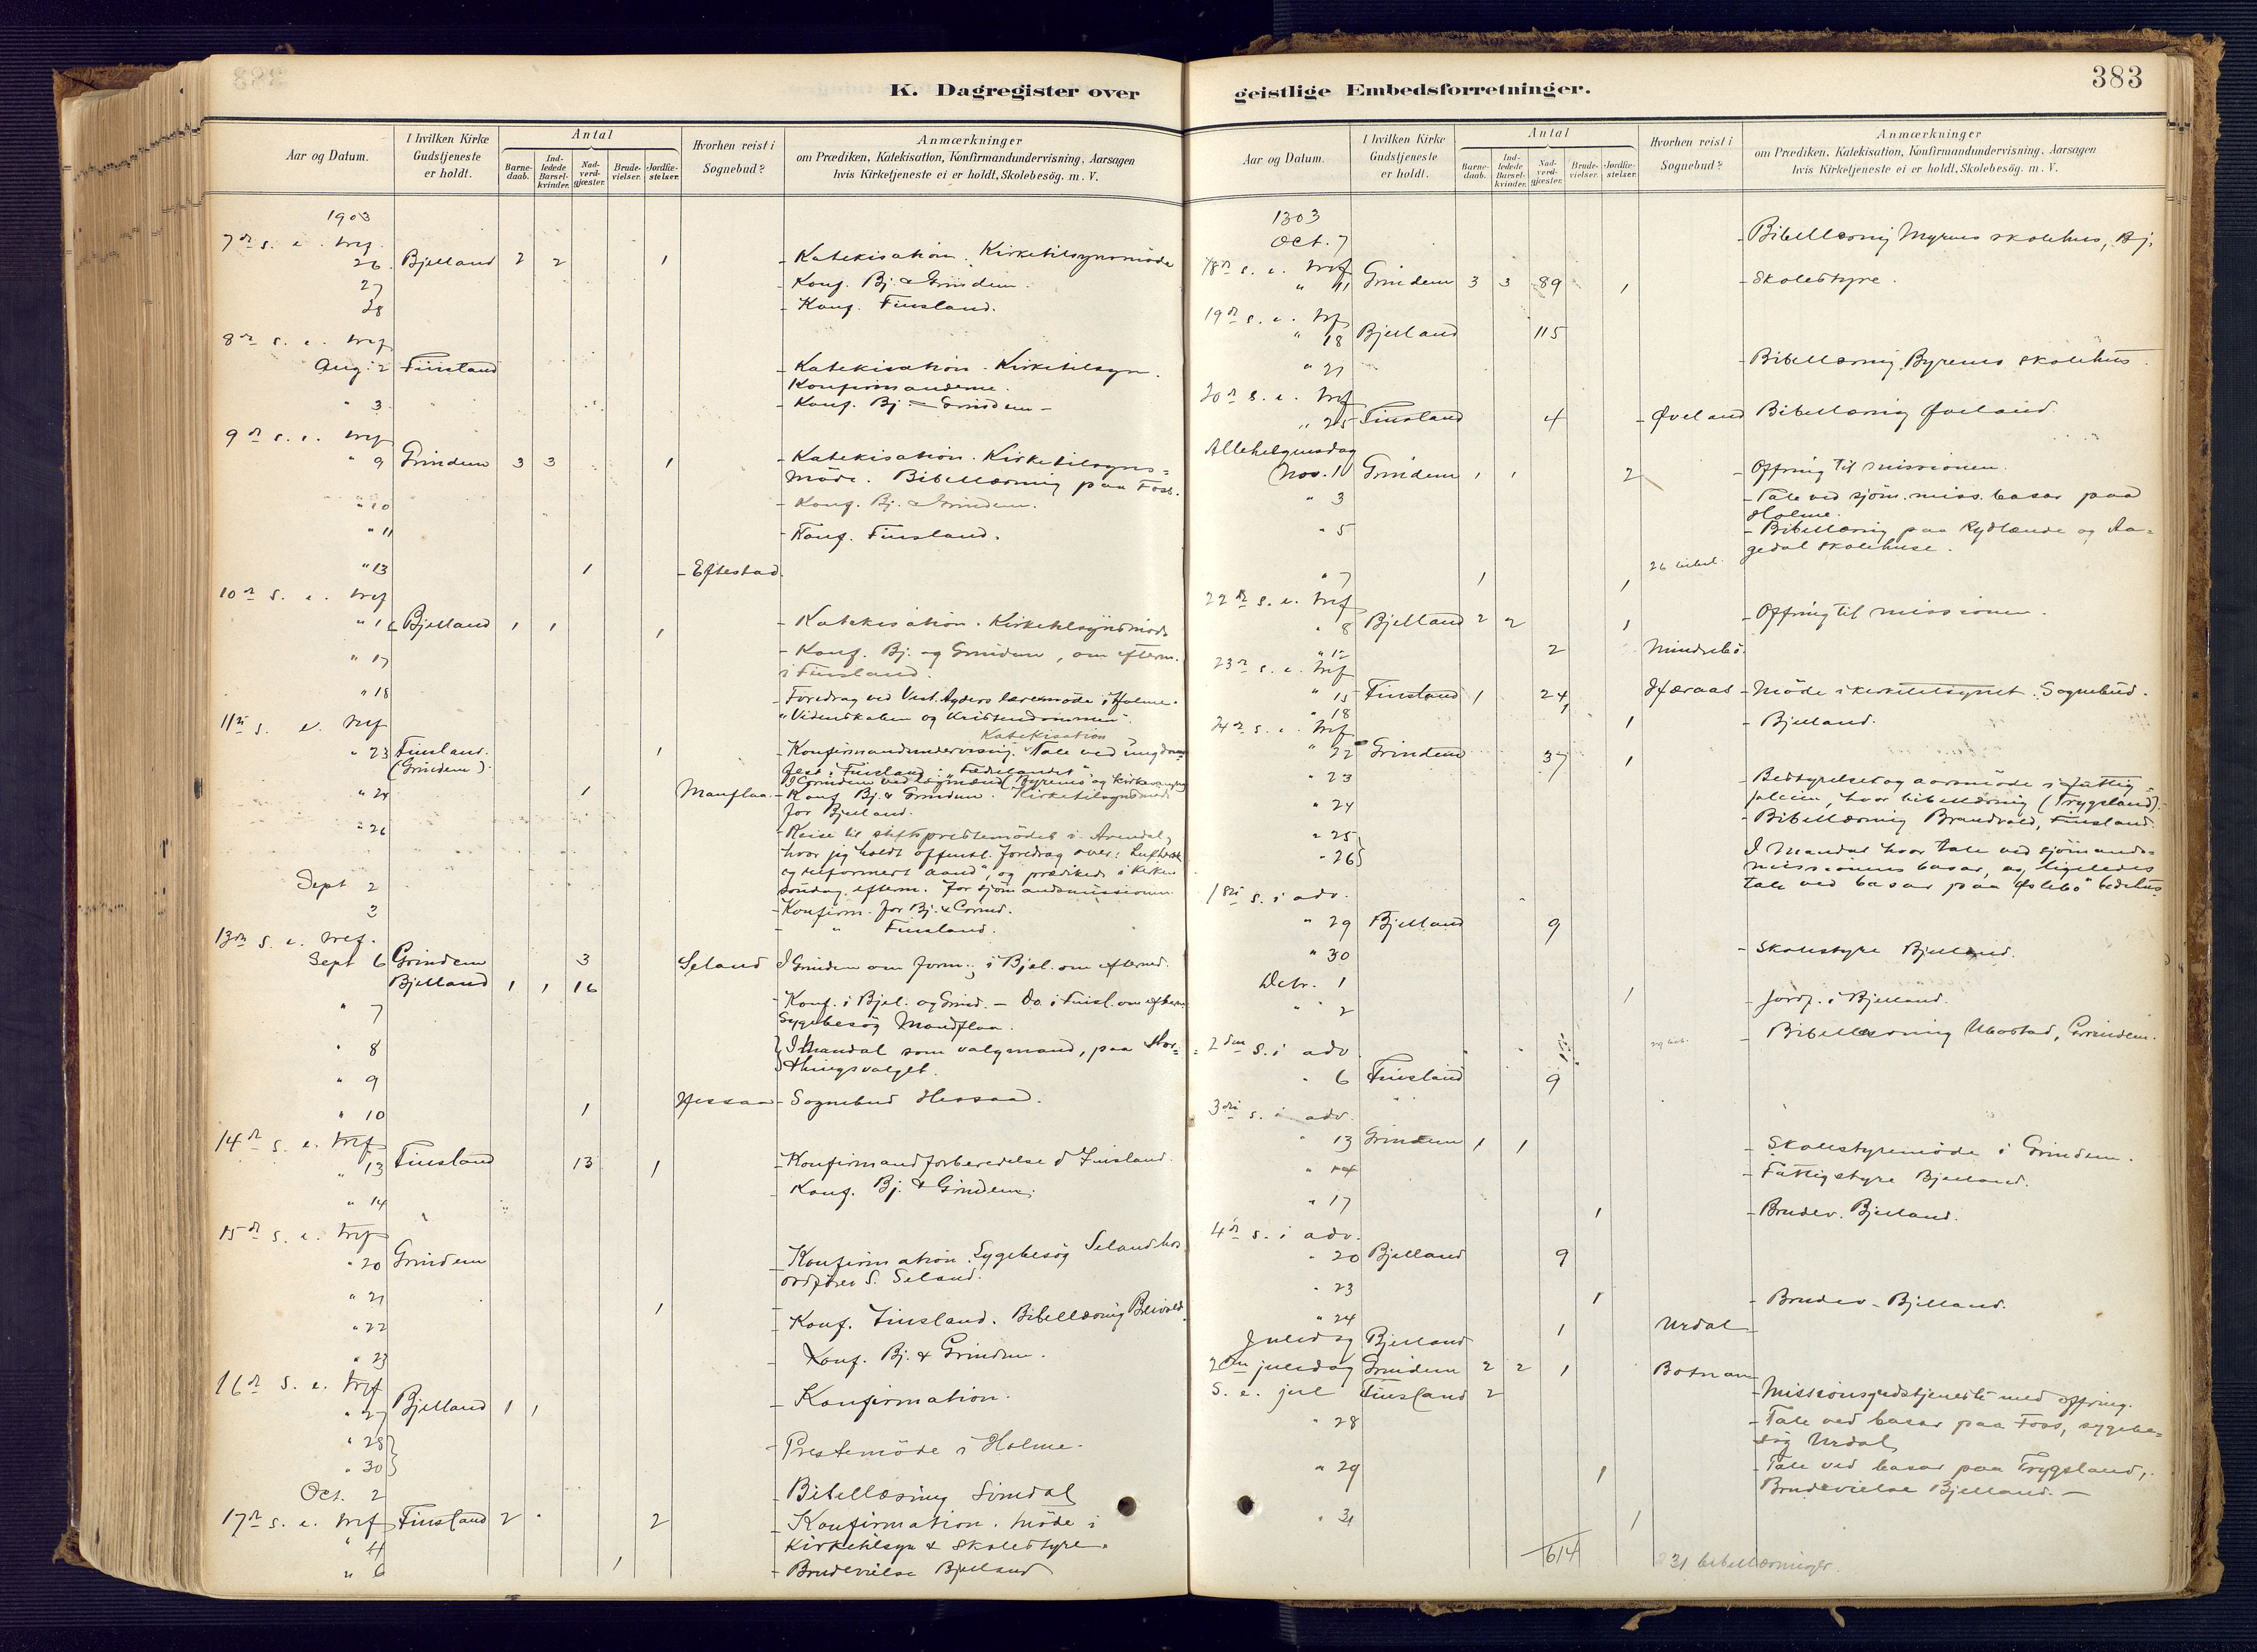 K. Dagregister over
Aar og Datum.
I hvilken Kirke Gudstjeneste er holdt.
Antal
Barne-daab.
Ind-ledede Barsel-kvinder.
Nad-verd-gjæster.
Brude-vielser.
Jordfæ-stelser.
Hvorhen reist i Sognebud?
Anmærkninger
om Prædiken, Katekisation, Konfirmandundervisning, Aarsagen
hvis Kirketjeneste ei er holdt, Skolebesög. m. V.
1903
7de s. e. tref.
26 Bjelland 2 2 1 - Katekisation. Kirketilsynsmöde
27 - Konf. Bj. & Grindem.
28 - Konf. Finsland.
8de s. e. tref
Aug. 2 Finsland - Katekisation. Kirketilsyn.
Konfirmanderne.
" 3 - Konf. Bj = Grindem -
9de s. e. tref
" 9 Grindem 3 3 1 - Katekisation. Kirketilsyns=
möde. Bibellæsning paa Foss.
" 10 - Konf. Bj. & Grindem.
" 11 - Konf. Finsland.
" 13 1 - Eftestad.
10de s. e. tref
" 16 Bjelland 1 1 1 - Katekisation. Kirketilsynsmöde
" 17 - Konf. Bj. og Grindem, om efterm.
i Finsland.
" 18 - Foredrag ved Vest. Agders læremöde i Holme.
"Videnskaben og Kristendommen".
11te s. e. tref
Katekisation
" 23 Finsland. 1 - Konfirmandundervisnig. Tale ved ungdoms
(Grindem). fest i Finsland: "Fædrelandet"
I Grindem ved lægmænd
" 24 1 Manflaa. - Konf Bj. & Grindem. Kirketilsynsmöde
for Bjelland.
" 26 - Reise til stiftspræstemödet i Arendal,
hvor jeg holdt offentl. foredrag over: Luthersk
og reformert aand", og prædikede i kirken
söndag efterm. for sjömandsmissionen
Sept 2 - Konfirm. for Bj. & Grind.
3 - " Finsland.
13de s. e. tref.
Sept 6 Grindem 3 Seland I Grindem om form.; i Bjel. om efterm.
Bjelland 1 1 16
" 7 - Konf. i Bjel. og Grind. - Do. i Finsl. om efterm.
Sygebesög Mandflaa.
" 8 I Mandal som valgmand, paa Stor=
thingsvalget.
" 9
" 10 1 Hessaa - Sognebud Hessaa.
14de s. e. tref
" 13 Finsland 13 1 - Konfirmandforberedelse i Finsland.
" 14 - Konf. Bj. & Grindem.
15de s. e. tref
" 20 Grindem - Konfirmation. Sygebesög Seland hos
ordförer S. Seland.
" 21 1
" 22 - Konf. Finsland. Bibellæsnig
" 23 - Konf. Bj. & Grindem.
16de s. e. tref
" 27 Bjelland 1 1 - Konfirmation.
" 28
" 30 - Prestemöde i Holme.
Oct. 2 - Bibellæsnig
17de s. e. tref Finsland 2 2 - Konfirmation. Möde i
" 4 Kirketilsyn & Skolestyre.
" 6 1 - Brudevielse Bjelland
geistlige Embedsforretninger.
383
Aar og Datum.
I hvilken Kirke Gudstjeneste er holdt.
Antal
Barne-daab.
Ind-ledede Barsel-kvinder.
Nad-verd-gjæster.
Brude-vielser.
Jordfæ-stelser.
Hvorhen reist i Sognebud?
Anmærkninger
om Prædiken, Katekisation, Konfirmandundervisning, Aarsagen
hvis Kirketjeneste ei er holdt, Skolebesög. m. V.
1903
Oct. 7 - Bibellæsnig Myrens skolehus, Bj.
18de s. e. tref
" 11 Grindem 3 3 89 1 - Skolestyre.
19de s. e. tref
" 18 Bjelland 115
" 21 - Bibellæsnig Byremo skolehus.
20de s. e. tref
" 25 Finsland 4 - Øveland Bibellæsnig Øveland.
Allehelgensdag
Nov. 1 Grindem 1 1 2 - Offring til missionen.
" 3 - Tale ved sjöm. miss. basar paa
Holme.
" 5 - Bibellæsnig paa Rydlænde og Aa=
gedal skolehuse.
26 bibel.
" 7 1 1
22de s. e. tref
" 8 Bjelland 2 2 1 - Offring til missionen.
" 12 2 Mindrebö
23de s. e. tref
" 15 Finsland 1 24 Hæraas - Möde i kirketilsynet. Sognebud.
" 18 1 1 - Bjelland.
24de s. e. tref
" 22 Grindem 37 1
" 23 - Bestyrelse og aarsmöde i fattig=
pleien, hvor bibellæsnig (Trygsland).
" 24 - Bibellæsnig Brandvold, Finsland.
" 25
" 26 I Mandal hvor tale ved sjömands=
missionens basar, og ligeledes
tale ved basar paa Øslebö bedehus
1ste s. i adv.
" 29 Bjelland 9
" 30 - Skolestyre Bjelland.
Decbr. 1 1 - Jordf. i Bjelland.
" 2 - Bibellæsning Ubostad, Grindem.
2den s. i adv
29 bib.
" 6 Finsland 9
3die s. i adv.
" 13 Grindem 1 1 - Skolestyremöde i Grindem.
" 14 - Fattigstyre Bjelland.
" 17 1 - Brudev. Bjelland.
4de s. i adv.
" 20 Bjelland 9
" 23 1 - Brudev - Bjelland.
" 24 1 Urdal
Juledag Bjelland
2den juledag Grindem 2 2 1 Botnan
S. e. jul Finsland 2 - Missionsgudstjeneste med offring.
" 28 - Tale ved basar paa Foss, sygebe=
sög Urdal
" 29 1 - Tale ved basar paa Trygsland,
Brudevielse Bjelland. -
" 31 1
614
31 bibellæsninger.